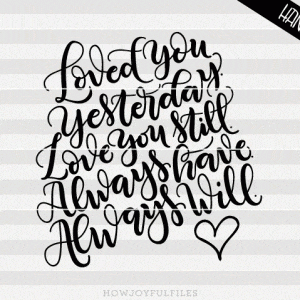 Loved you
yesterday.
Love you still
Always have.
Always Will.
HOWJOYFULFILES